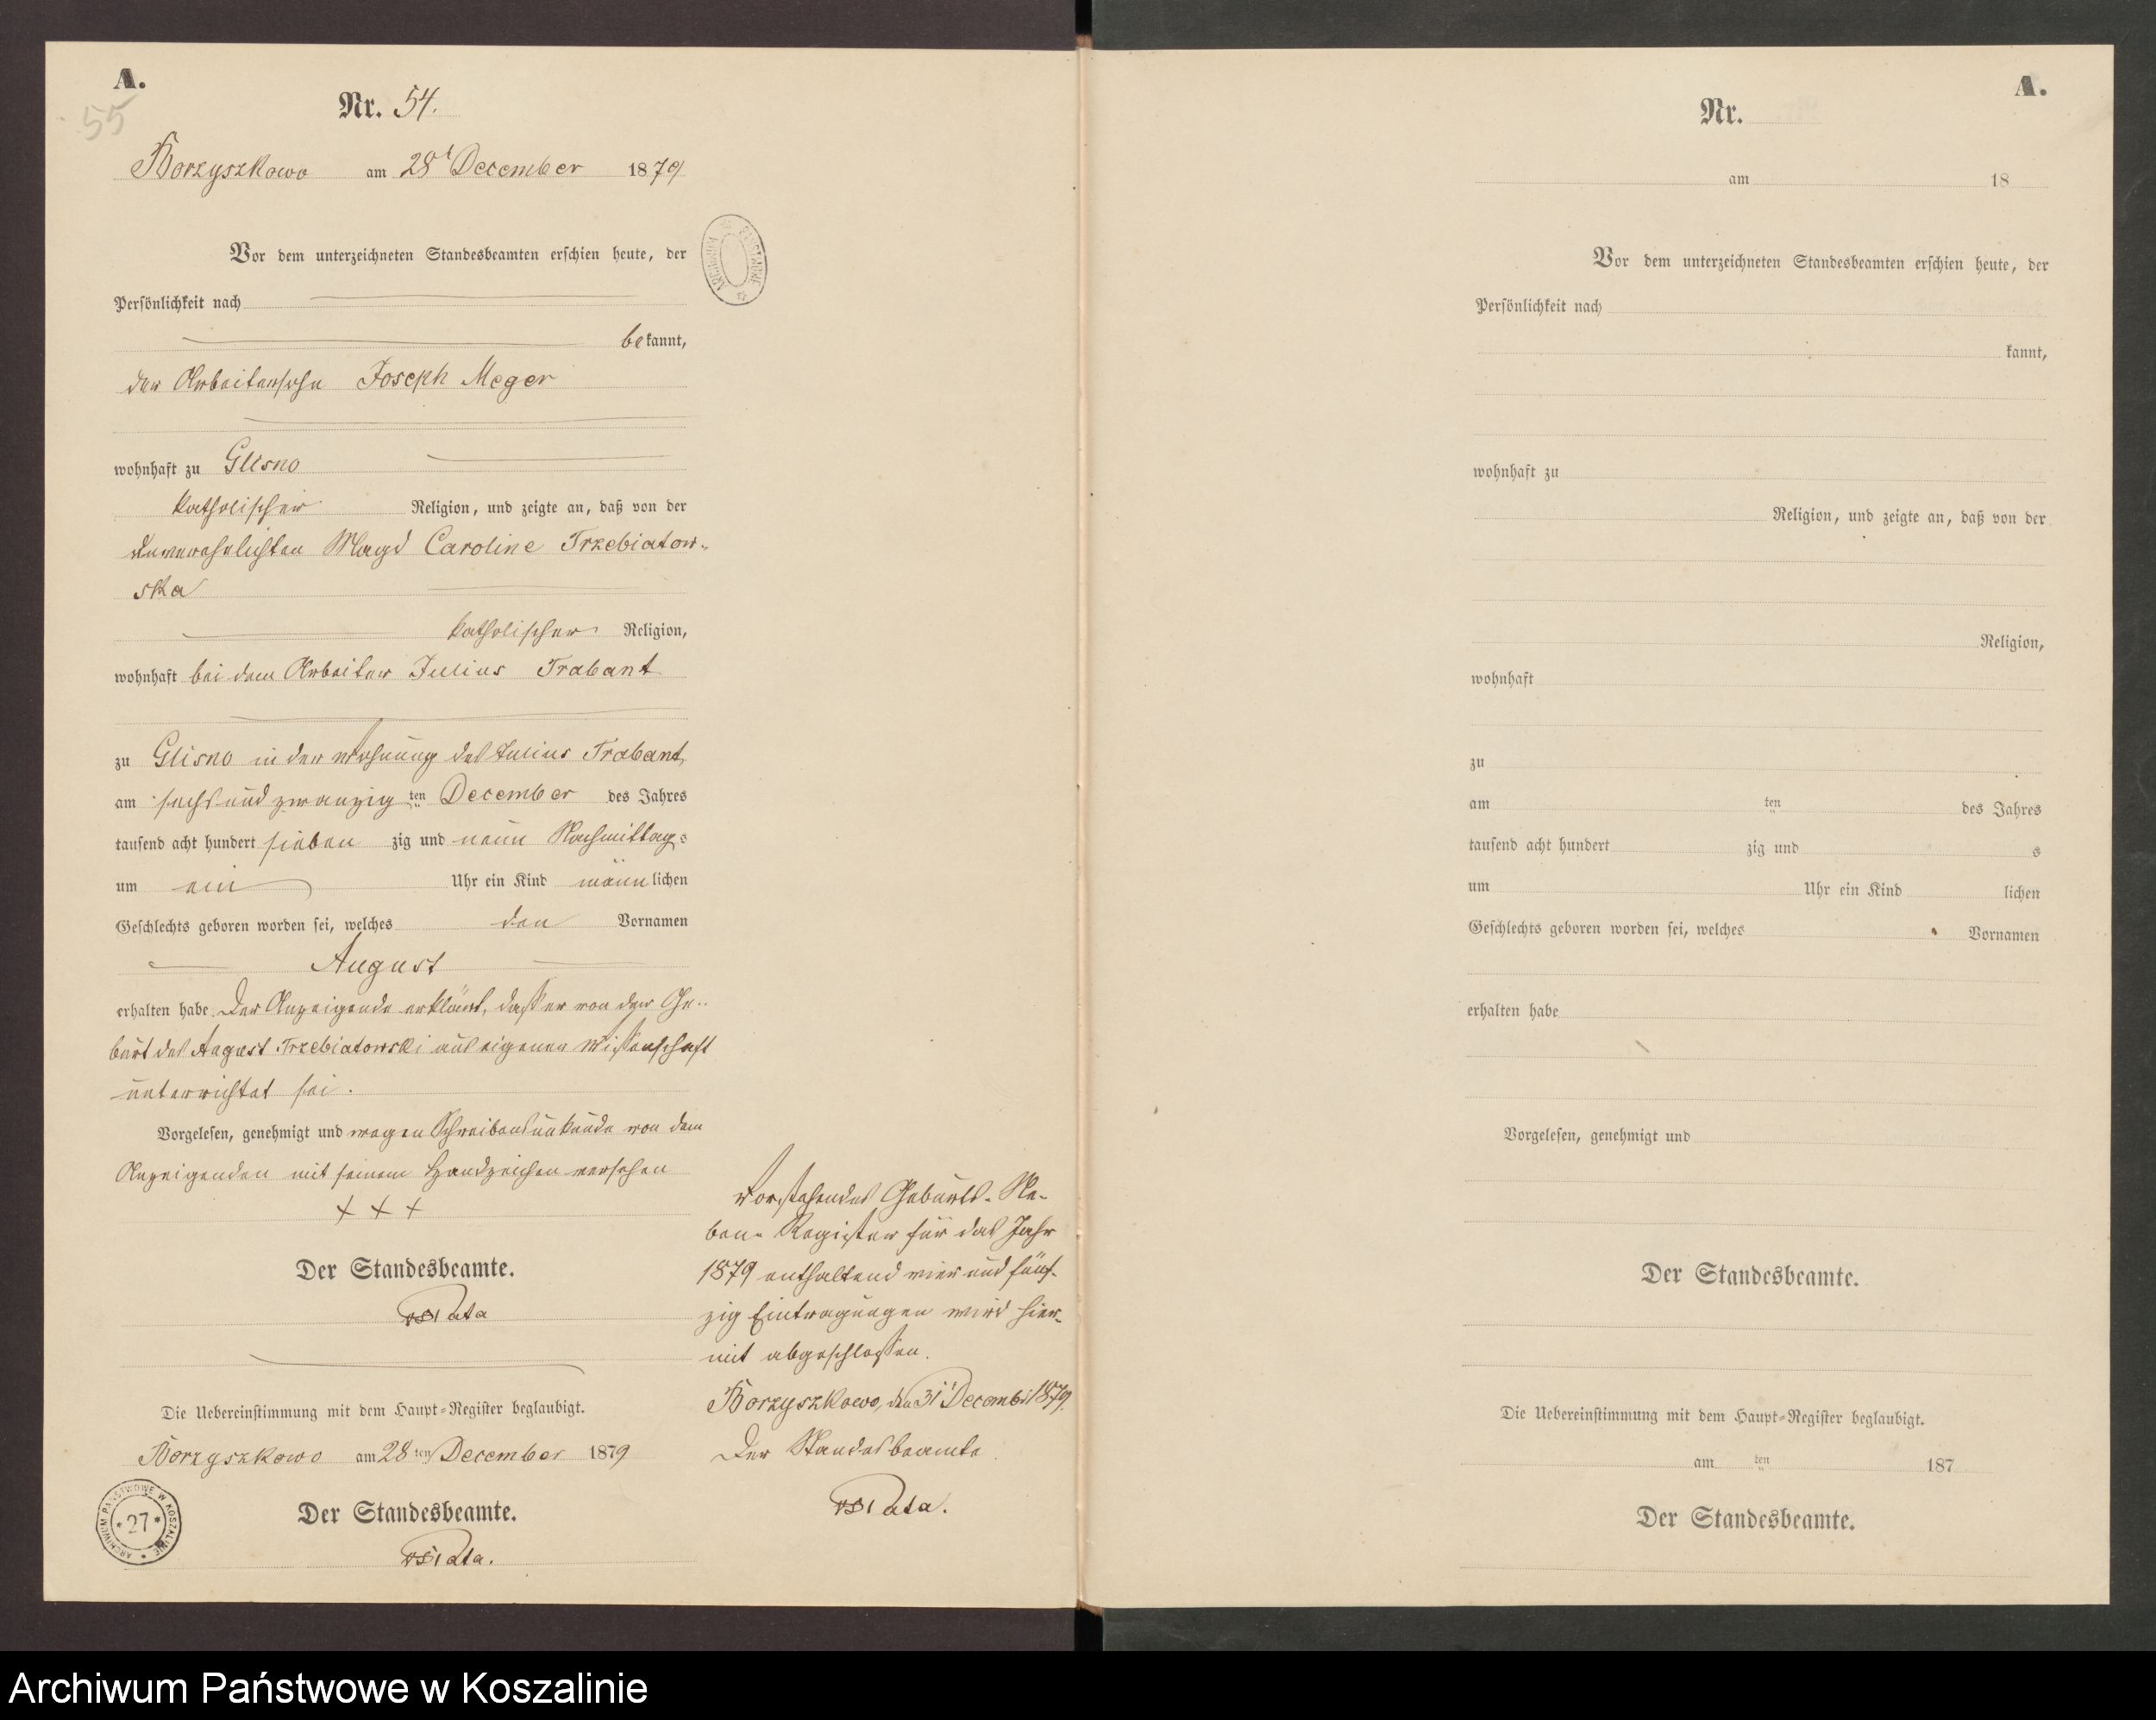 A.
55
Nr. 54.
Borzyszkowo am 28t December 1879
Vor dem unterzeichneten Standesbeamten erschien heute, der
Persönlichkeit nach
bekannt,
der Arbeitersohn Joseph Meger
wohnhaft zu Glisno
katholischer Religion, und zeigte an, daß von der
unverehelichten Magd Caroline Trzebiatow-
ska
katholischer Religion,
wohnhaft bei dem Arbeiter Julius Trabant
zu Glisno in der Wohnung des Julius Trabant
am sechsundzwanzig ten December des Jahres
tausend acht hundert sieben zig und neun Nachmittags
um ein Uhr ein Kind männlichen
Geschlechts geboren worden sei, welches den Vornamen
August
erhalten habe. Der Anzeigende erklärt, daß er von der Ge-
burt des August Trzebiatowski aus eigener Wissenschaft
unterrichtet sei.
Vorgelesen, genehmigt und wegen Schreibensunkunde von dem
Anzeigenden mit seinem Handzeichen versehen
+ + +
Der Standesbeamte.
Die Uebereinstimmung mit dem Haupt-Register beglaubigt.
Borzyszkowo am 28 ten December 1879
Der Standesbeamte.
ARCHIWUM PAŃSTWOWE W KOSZALINIE
*27*
Vorstehendes Geburts-Ne-
ben-Register für das Jahr
1879 enthaltend vier und fünf-
zig Eintragungen wird hier-
mit abgeschlossen.
Borzyszkowo, den 31t Decembr 1879.
Der Standesbeamte
A.
Nr.
am 18
Vor dem unterzeichneten Standesbeamten erschien heute, der
Persönlichkeit nach
kannt,
wohnhaft zu
Religion, und zeigte an, daß von der
Religion,
wohnhaft
zu
am ten des Jahres
tausend acht hundert zig und s
um Uhr ein Kind lichen
Geschlechts geboren worden sei, welches Vornamen
erhalten habe
Vorgelesen, genehmigt und
Der Standesbeamte.
Die Uebereinstimmung mit dem Haupt-Register beglaubigt.
am ten 187
Der Standesbeamte.
Archiwum Państwowe w Koszalinie